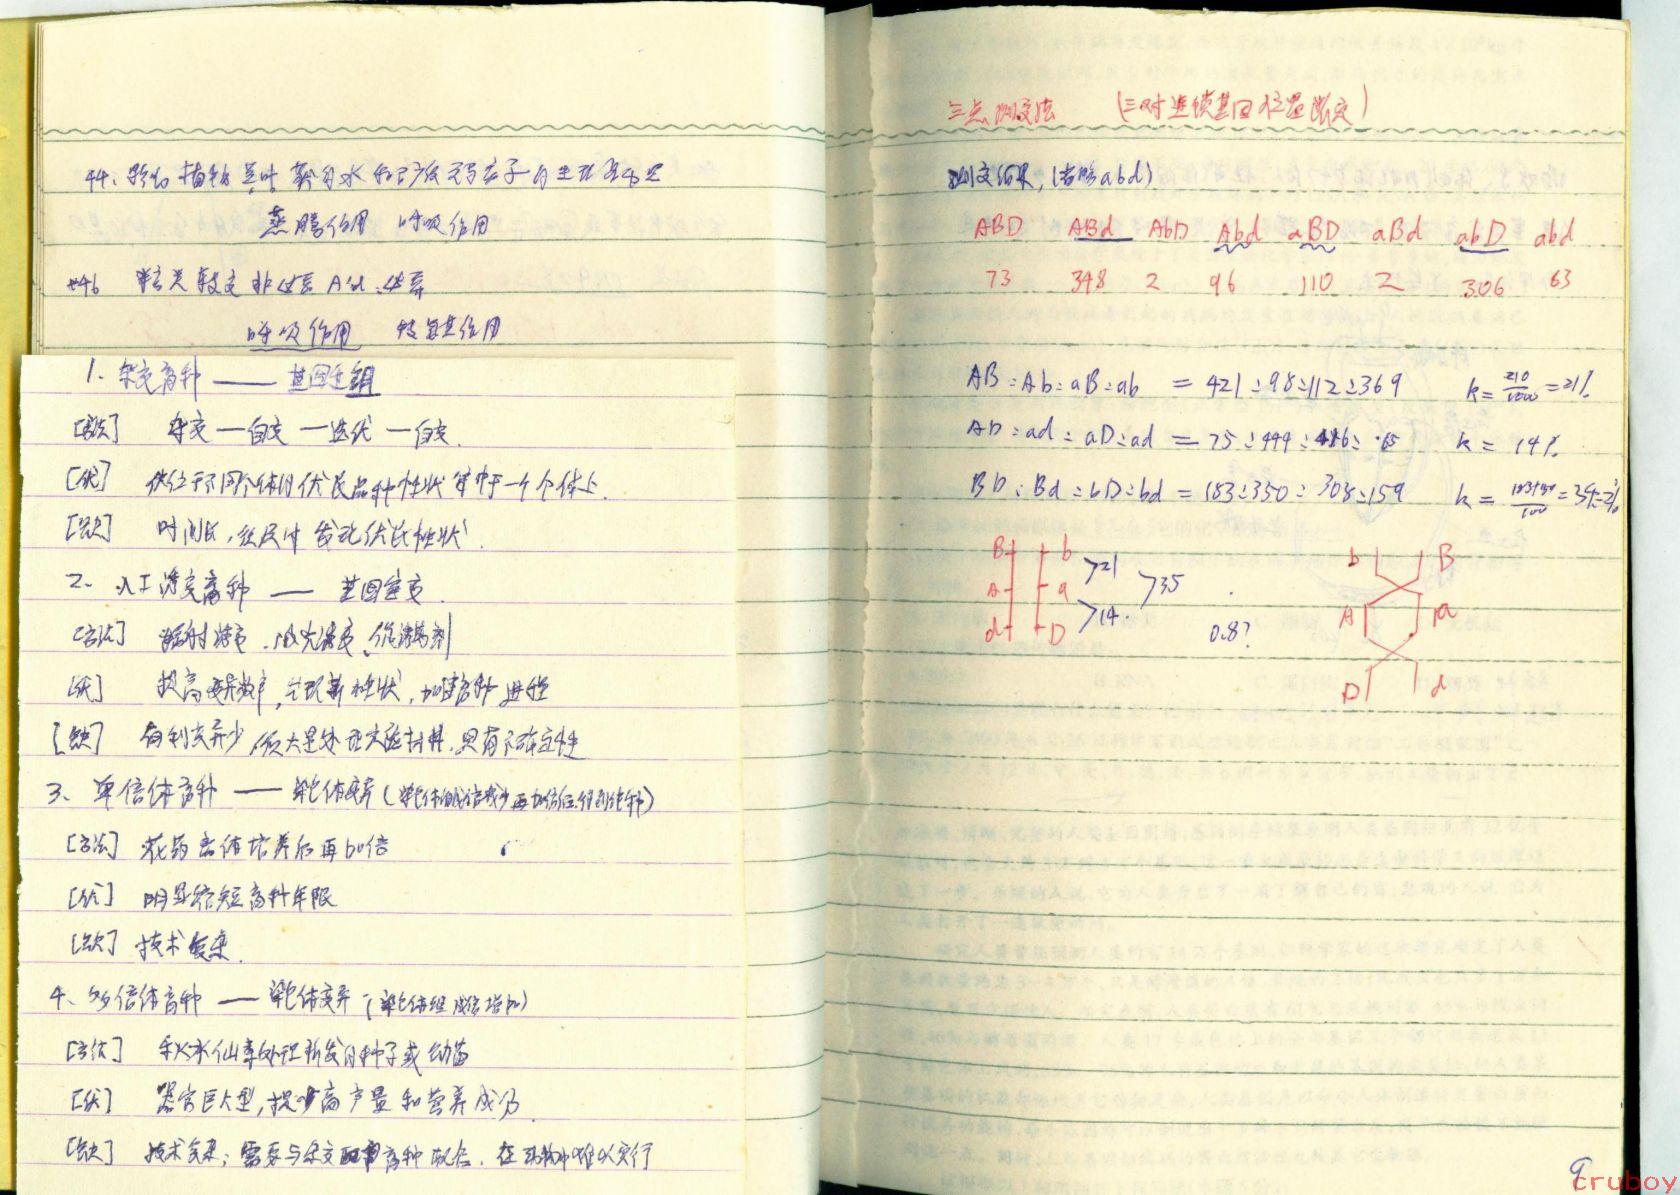 44、影响植物蒸腾和水和矿质离子的主功是
蒸腾作用 呼吸作用
*46
呼吸作用
1、杂交育种 —— 基因重组
[方法] 杂交 — 自交 — 选优 — 自交.
[优] 使位于不同个体的优良品种性状集中于一个个体上.
[缺] 时间长，须及时发现优良性状.
2、人工诱变育种 —— 基因突变.
[方法] 辐射诱变、激光诱变、化诱变剂
[优] 提高变异频率，出现新性状，加速育种进程
[缺] 有利变异少，须大量处理实验材料，具有不确定性
3、单倍体育种 —— 染色体变异(染色体成倍减少再加倍后得到纯种)
[方法] 花药离体培养后再加倍
[优] 明显缩短育种年限
[缺] 技术复杂.
4、多倍体育种 —— 染色体变异 (染色体组成倍增加)
[方法] 秋水仙素处理萌发的种子或幼苗
[优] 器官巨大型，提高产量和营养成分.
[缺] 技术复杂；需要与杂交育种配合. 在动物中难以实行
三点测交法 (三对连续基因位置断定)
测交结果，(若略abd)
ABD ABd AbD Abd aBD aBd abD abd
73 348 2 96 110 2 306 63
AB:Ab:aB:ab = 421:98:112:369 k=210/1000=21%
AD:ad:aD:ad = 75:444:416:65 k= 14%
BD:Bd:bD:bd = 183:350:308:159 k= =34.2%
B b >21
A a >35
d D >14
0.8?
b B
A a
D d
9
cruboy